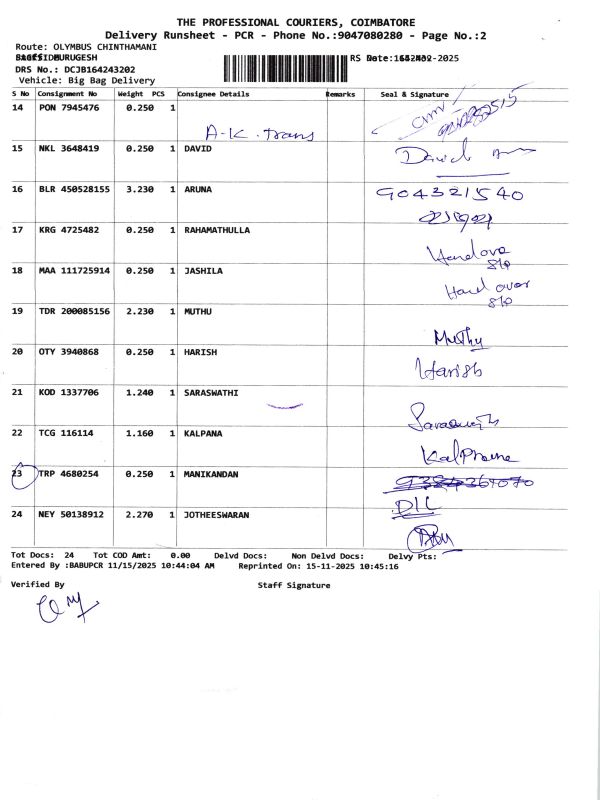 THE PROFESSIONAL COURIERS, COIMBATORE
Delivery Runsheet - PCR - Phone No.:9047080280 - Page No.:2
Route: OLYMBUS CHINTHAMANI
DRS No.: DCJB164243202
Vehicle: Big Bag Delivery
S No Consignment No Weight PCS Consignee Details Remarks Seal & Signature
14 PON 7945476 0.250 1
A-K. trans
15 NKL 3648419 0.250 1 DAVID David
16 BLR 450528155 3.230 1 ARUNA 904321540
17 KRG 4725482 0.250 1 RAHAMATHULLA
Handove
18 MAA 111725914 0.250 1 JASHILA
Hand over
19 TDR 200085156 2.230 1 MUTHU
Muthy
20 OTY 3940868 0.250 1 HARISH Harish
21 KOD 1337706 1.240 1 SARASWATHI
22 TCG 116114 1.160 1 KALPANA
23 TRP 4680254 0.250 1 MANIKANDAN
24 NEY 50138912 2.270 1 JOTHEESWARAN
Tot Docs: 24 Tot COD Amt: 0.00 Delvd Docs: Non Delvd Docs: Delvy Pts:
Entered By :BABUPCR 11/15/2025 10:44:04 AM Reprinted On: 15-11-2025 10:45:16
Verified By Staff Signature